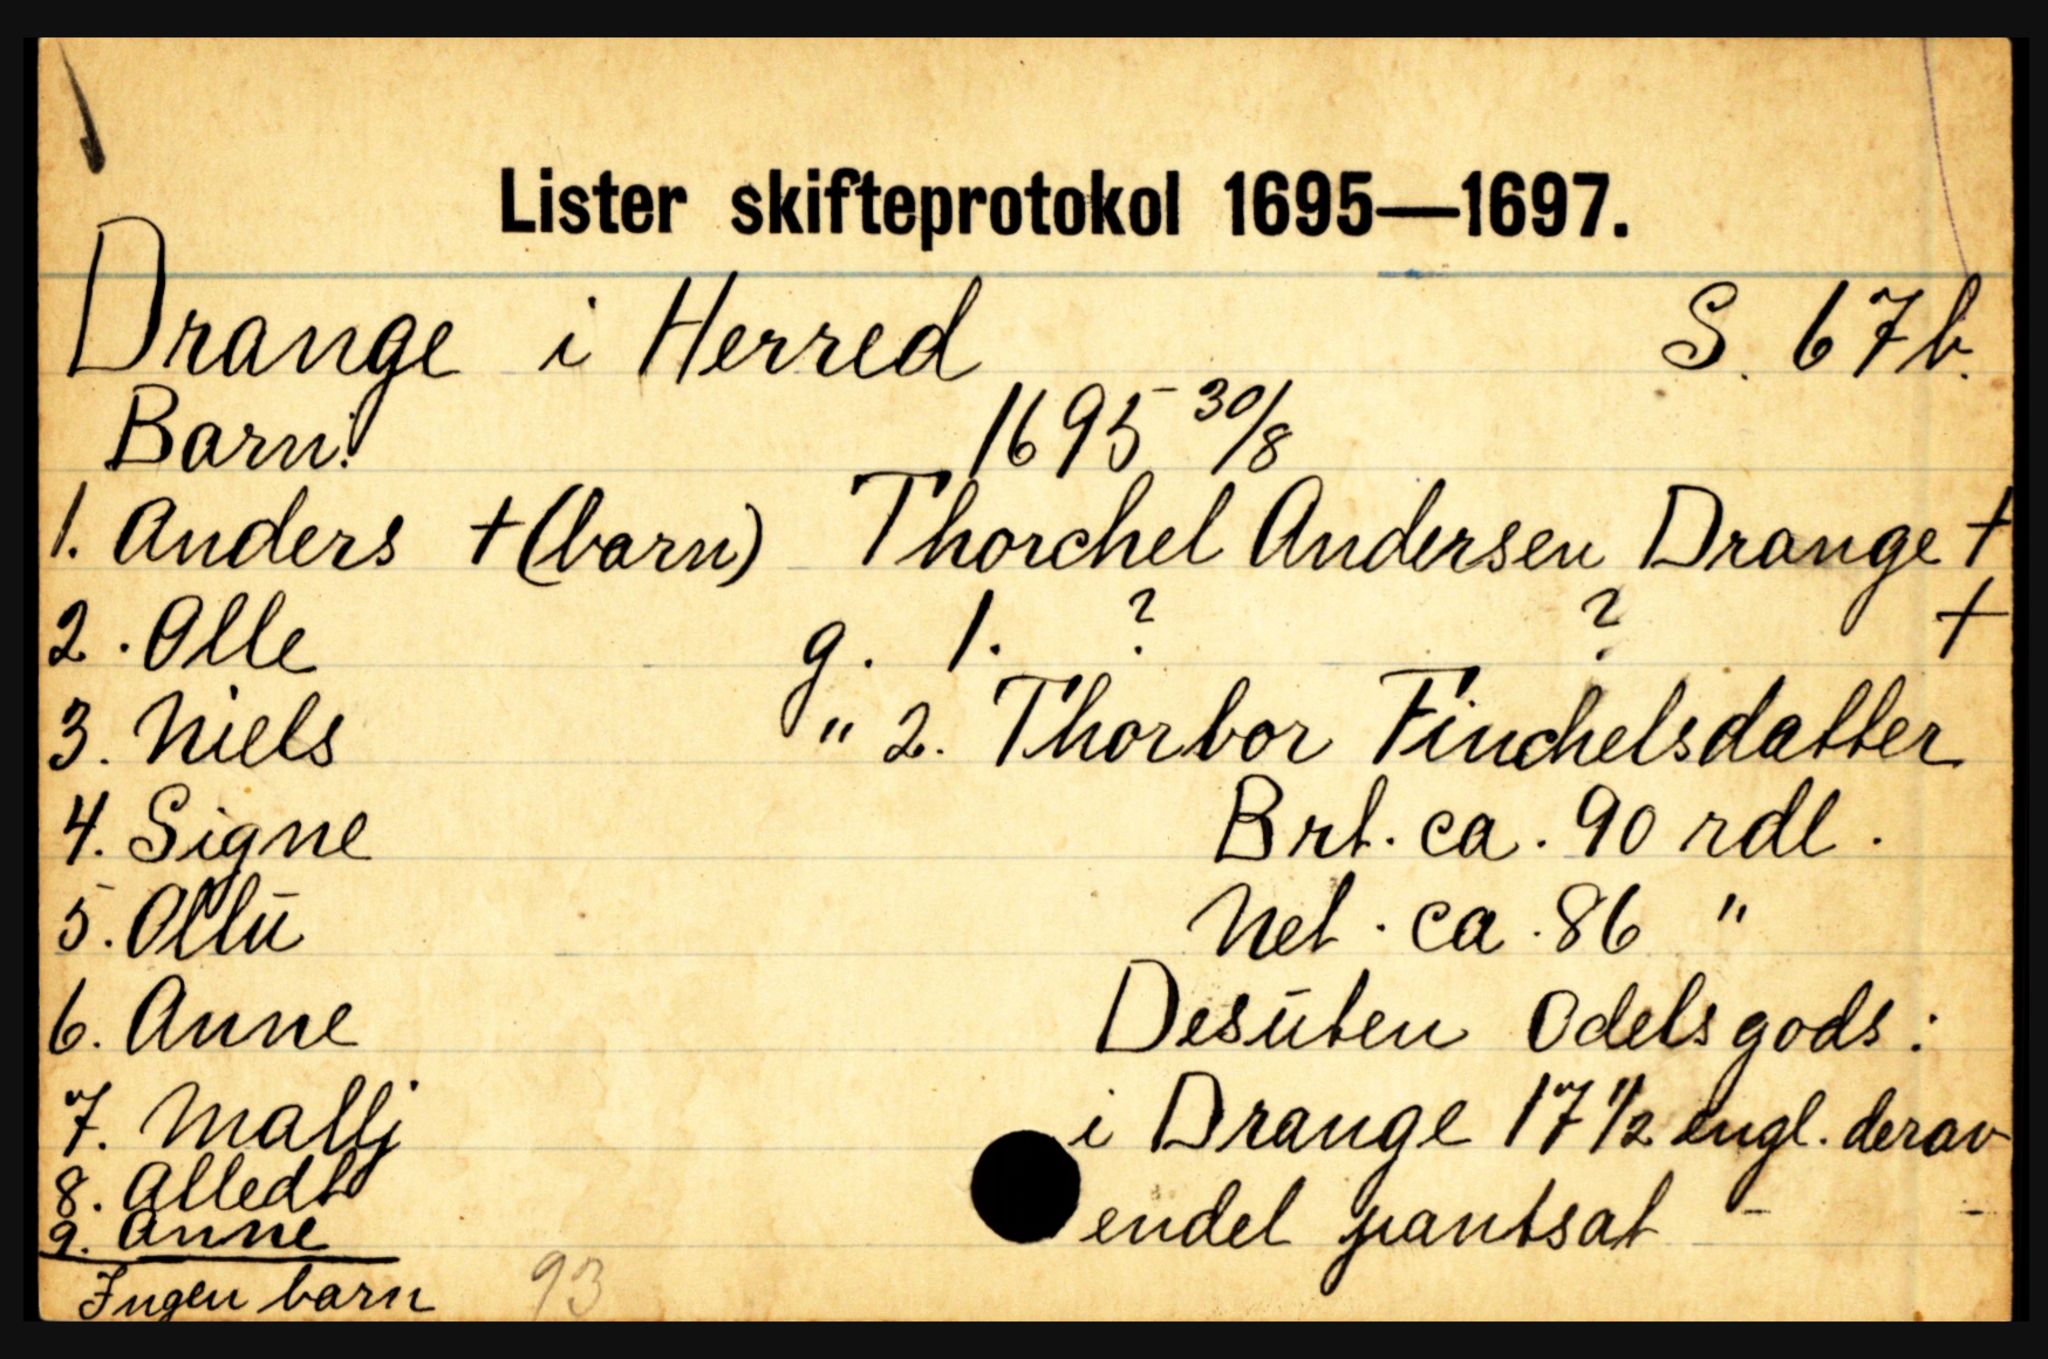 Lister skifteprotokol 1695—1697.
Drange i Herred S. 67b.
Barn: 1695 30/8
1. Anders +(barn) Thorchel Andersen Drange +
2. Olle g. 1. ? ? +
3. Niels " 2. Thorbor Finchelsdatter
4. Signe Brt. ca. 90 rdl.
5. Ollu Net. ca. 86 "
6. Anne Desuten Odelsgods:
7. Mallj i Drange 17 1/2 engl. derav
8. Alledt endel pantsat - -
9. Anne
Ingen barn 93